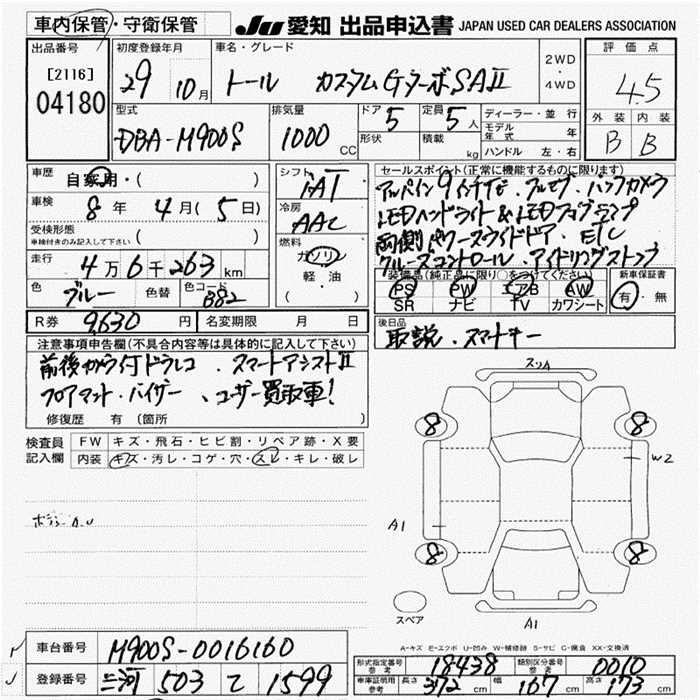 車内保管・守衛保管
JU 愛知 出品申込書 JAPAN USED CAR DEALERS ASSOCIATION
出品番号
[2116]
04180
初度登録年月
29 10月
車名・グレード
トール カスタムGターボSAⅡ
2WD
・
4WD
評価点
4.5
外装 内装
B B
型式
DBA-M900S
排気量
1000 CC
ドア 5
形状
定員 5人
積載 kg
ディーラー・並行
モデル年式 年
ハンドル 左・右
車歴
自家用・( )
車検
8年 4月(5日)
受検形態
車検付きのみ記入して下さい ( )
走行
4万6千263km
色
ブルー
色替
色コード
B82
シフト
IAT
冷房
AAC
燃料
ガソリン
軽・油
( )
R券 9,630円
名変期限 月 日
セールスポイント(正常に機能するものに限ります)
アルパイン9インチナビ・フルセグ・バックカメラ
LEDヘッドライト&LEDフォグランプ
両側パワースライドドア・ETC
クルーズコントロール・アイドリングストップ
装備品(純正品に限り○をつけてください)
PS PW エアB AW
SR ナビ TV カワシート
新車保証書
有・無
後日品
取説・スマートキー
注意事項申告欄(不具合内容等は具体的に記入して下さい)
前後カメラ付ドラレコ・スマートアシストⅡ
フロアマット・バイザー、ユーザー買取車!
修復歴 有 (箇所 )
検査員記入欄
FW キズ・飛石・ヒビ割・リペア跡・X要
内装 キズ・汚レ・コゲ・穴・スレ・キレ・破レ
スリA
8 8
W2
A1
8 8
スペア
A1
A-キズ E-エクボ U-凹み W-補修跡 S-サビ C-腐食 XX-交換済
車台番号 M900S-0016160
登録番号 三河 503 て 1599
形式指定番号 参考 18438
類別区分番号 参考 0010
車庫証明用 参考 長さ 372cm 幅 167cm 高さ 173cm